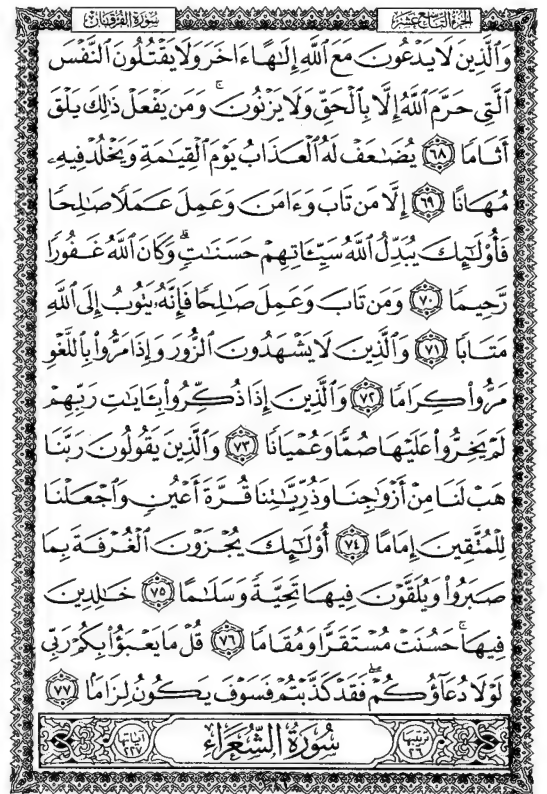 سورة الفرقان الجزء التاسع عشر
وَٱلَّذِينَ لَا يَدْعُونَ مَعَ ٱللَّهِ إِلَٰهًا ءَاخَرَ وَلَا يَقْتُلُونَ ٱلنَّفْسَ
ٱلَّتِي حَرَّمَ ٱللَّهُ إِلَّا بِٱلْحَقِّ وَلَا يَزْنُونَ ۚ وَمَن يَفْعَلْ ذَٰلِكَ يَلْقَ
أَثَامًا ٦٨ يُضَٰعَفْ لَهُ ٱلْعَذَابُ يَوْمَ ٱلْقِيَٰمَةِ وَيَخْلُدْ فِيهِۦ
مُهَانًا ٦٩ إِلَّا مَن تَابَ وَءَامَنَ وَعَمِلَ عَمَلًا صَٰلِحًا
فَأُو۟لَٰٓئِكَ يُبَدِّلُ ٱللَّهُ سَيِّـَٔاتِهِمْ حَسَنَٰتٍ ۗ وَكَانَ ٱللَّهُ غَفُورًا
رَّحِيمًا ٧٠ وَمَن تَابَ وَعَمِلَ صَٰلِحًا فَإِنَّهُۥ يَتُوبُ إِلَى ٱللَّهِ
مَتَابًا ٧١ وَٱلَّذِينَ لَا يَشْهَدُونَ ٱلزُّورَ وَإِذَا مَرُّوا۟ بِٱللَّغْوِ
مَرُّوا۟ كِرَامًا ٧٢ وَٱلَّذِينَ إِذَا ذُكِّرُوا۟ بِـَٔايَٰتِ رَبِّهِمْ
لَمْ يَخِرُّوا۟ عَلَيْهَا صُمًّا وَعُمْيَانًا ٧٣ وَٱلَّذِينَ يَقُولُونَ رَبَّنَا
هَبْ لَنَا مِنْ أَزْوَٰجِنَا وَذُرِّيَّٰتِنَا قُرَّةَ أَعْيُنٍ وَٱجْعَلْنَا
لِلْمُتَّقِينَ إِمَامًا ٧٤ أُو۟لَٰٓئِكَ يُجْزَوْنَ ٱلْغُرْفَةَ بِمَا
صَبَرُوا۟ وَيُلَقَّوْنَ فِيهَا تَحِيَّةً وَسَلَٰمًا ٧٥ خَٰلِدِينَ
فِيهَا ۚ حَسُنَتْ مُسْتَقَرًّا وَمُقَامًا ٧٦ قُلْ مَا يَعْبَؤُا۟ بِكُمْ رَبِّي
لَوْلَا دُعَآؤُكُمْ ۖ فَقَدْ كَذَّبْتُمْ فَسَوْفَ يَكُونُ لِزَامًۢا ٧٧
ترتيبها ٢٦ سُورَةُ الشُّعَرَاءِ آياتها ٢٢٧